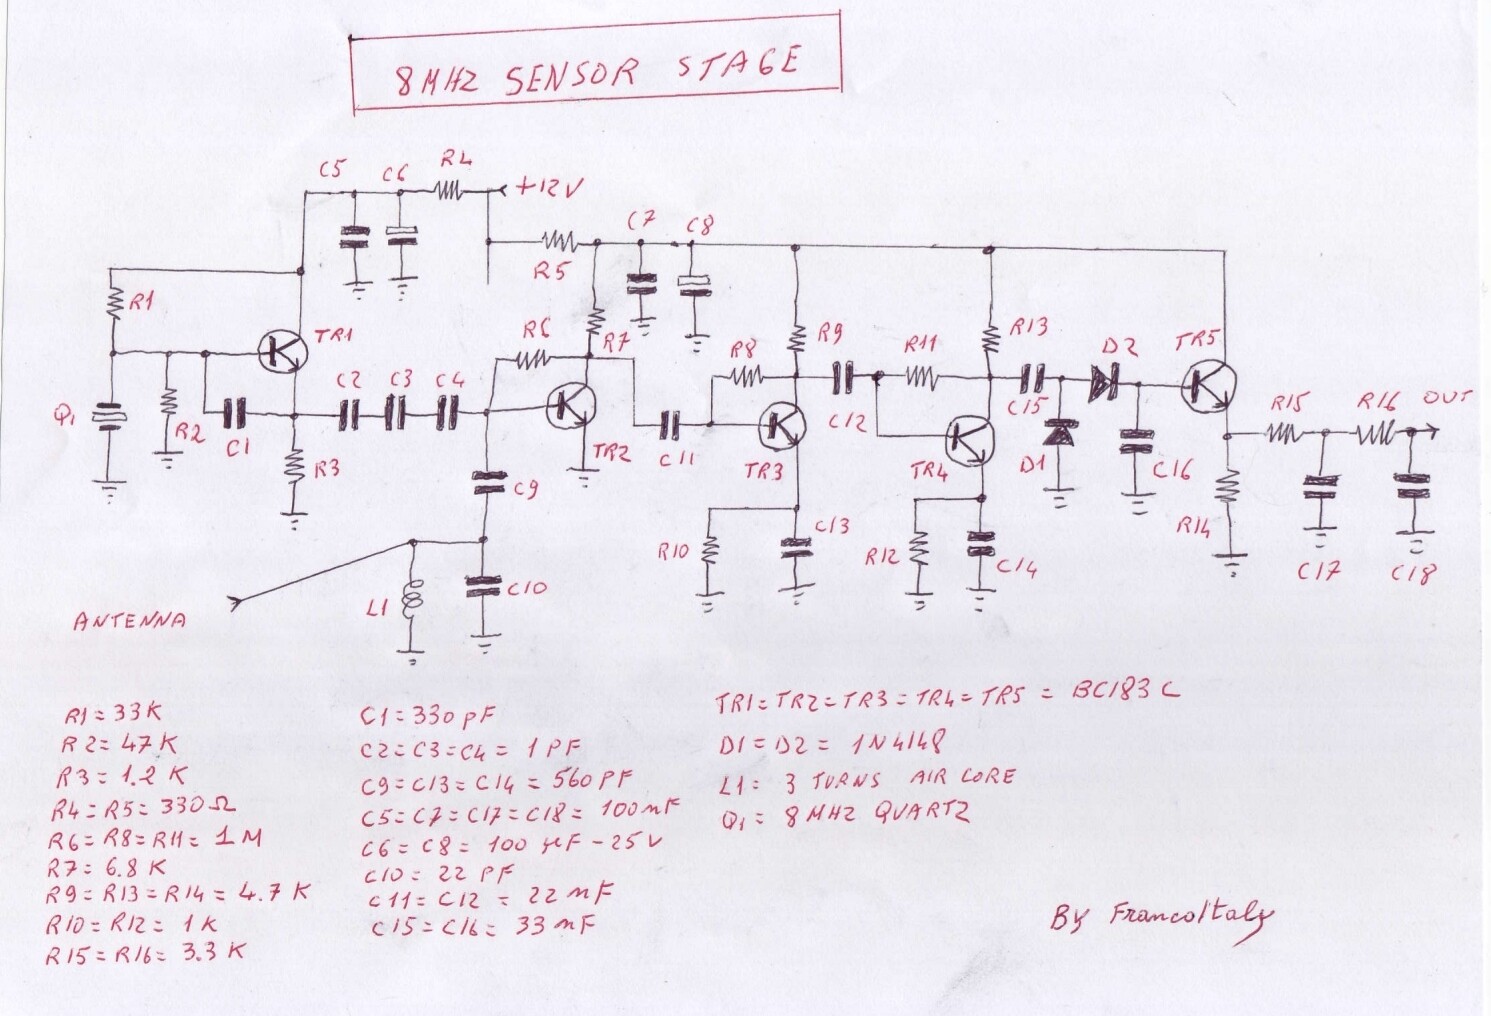 8MHZ SENSOR STAGE
C5
C6
R4
+12V
C7
C8
R5
R1
TR1
R6
R7
R8
R9
R11
R13
D2
TR5
Q1
R2
C1
C2
C3
C4
R3
TR2
C11
TR3
C12
TR4
C15
D1
C16
R15
R16
OUT
C9
C10
L1
ANTENNA
R10
C13
R12
C14
R14
C17
C18
R1=33K
R2=47K
R3=1.2K
R4=R5=330Ω
R6=R8=R11=1M
R7=6.8K
R9=R13=R14=4.7K
R10=R12=1K
R15=R16=3.3K
C1=330pF
C2=C3=C4=1PF
C9=C13=C14=560PF
C5=C7=C17=C18=100nF
C6=C8=100µF-25V
C10=22PF
C11=C12=22nF
C15=C16=33nF
TR1=TR2=TR3=TR4=TR5=BC183C
D1=D2=1N4148
L1=3 TURNS AIR CORE
Q1=8MHZ QUARTZ
By FrancoItaly